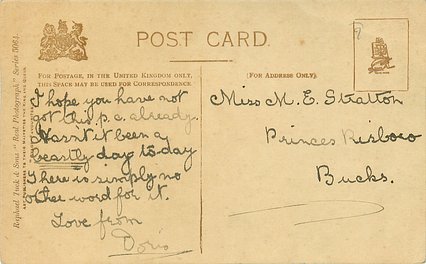 POST CARD.
FOR POSTAGE, IN THE UNITED KINGDOM ONLY,
THIS SPACE MAY BE USED FOR CORRESPONDENCE.
(FOR ADDRESS ONLY).
I hope you have not
got this p.c. already.
Hasn't it been a
beastly day to day
There is simply no
other word for it.
Love from
Doris
Miss M. E. Stratton
Princes Risboro
Bucks.
Raphael Tuck & Sons' "Real Photograph" Series 5064.